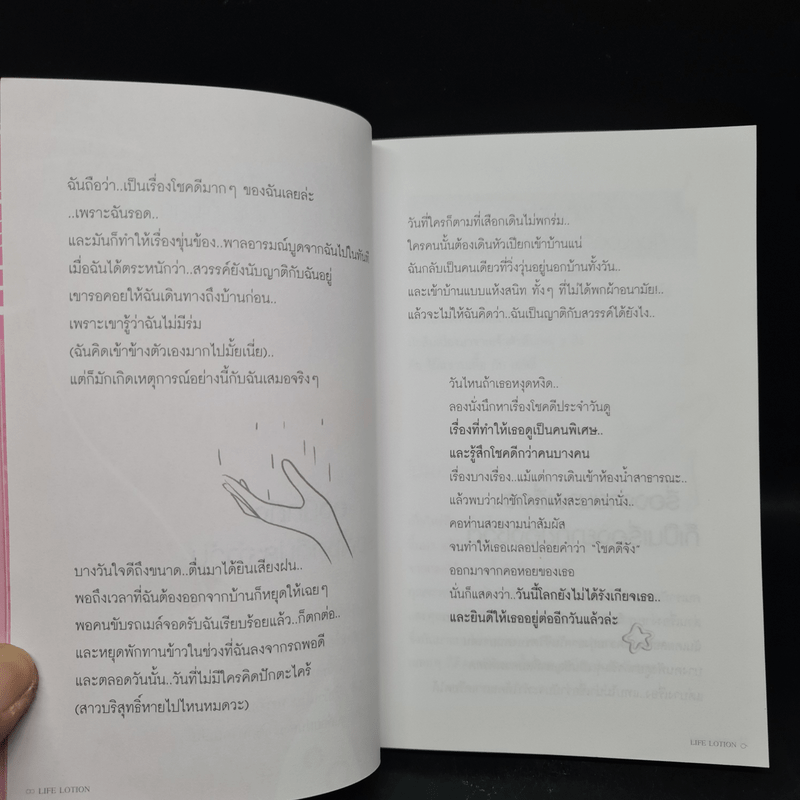 ฉันถือว่า..เป็นเรื่องโชคดีมากๆ ของฉันเลยล่ะ
..เพราะฉันรอด..
และมันก็ทำให้เรื่องขุ่นข้อง..พาลอารมณ์บูดจากฉันไปในทันที
เมื่อฉันได้ตระหนักว่า..สวรรค์ยังนับญาติกับฉันอยู่
เขารอคอยให้ฉันเดินทางถึงบ้านก่อน..
เพราะเขารู้ว่าฉันไม่มีร่ม
(ฉันคิดเข้าข้างตัวเองมากไปมั้ยเนี่ย)..
แต่ก็มักเกิดเหตุการณ์อย่างนี้กับฉันเสมอจริงๆ
บางวันใจดีถึงขนาด..ตื่นมาได้ยินเสียงฝน..
พอถึงเวลาที่ฉันต้องออกจากบ้านก็หยุดให้เฉยๆ
พอคนขับรถเมล์จอดรับฉันเรียบร้อยแล้ว..ก็ตกต่อ..
และหยุดพักทานข้าวในช่วงที่ฉันลงจากรถพอดี
และตลอดวันนั้น..วันที่ไม่มีใครคิดปักตะไคร้
(สาวบริสุทธิ์หายไปไหนหมดวะ)
LIFE LOTION
วันที่ใครก็ตามที่เสือกเดินไม่พกร่ม..
ใครคนนั้นต้องเดินหัวเปียกเข้าบ้านแน่
ฉันกลับเป็นคนเดียวที่วิ่งวุ่นอยู่นอกบ้านทั้งวัน..
และเข้าบ้านแบบแห้งสนิท ทั้งๆ ที่ไม่ได้พกผ้าอนามัย!..
แล้วจะไม่ให้ฉันคิดว่า..ฉันเป็นญาติกับสวรรค์ได้ยังไง..
วันไหนถ้าเธอหงุดหงิด..
ลองนั่งนึกหาเรื่องโชคดีประจำวันดู
เรื่องที่ทำให้เธอดูเป็นคนพิเศษ..
และรู้สึกโชคดีกว่าคนบางคน
เรื่องบางเรื่อง..แม้แต่การเดินเข้าห้องน้ำสาธารณะ..
แล้วพบว่าฝาชักโครกแห้งสะอาดน่านั่ง..
คอห่านสวยงามน่าสัมผัส
จนทำให้เธอเผลอปล่อยคำว่า “โชคดีจัง”
ออกมาจากคอหอยของเธอ
นั่นก็แสดงว่า..วันนี้โลกยังไม่ได้รังเกียจเธอ..
และยินดีให้เธออยู่ต่ออีกวันแล้วล่ะ
LIFE LOTION